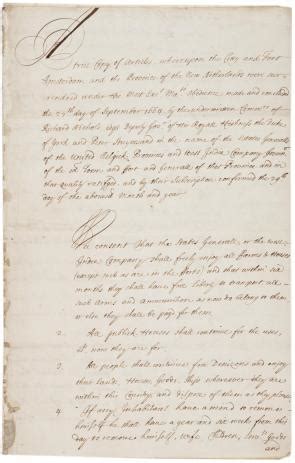 A true Copy of Articles, whereupon the City and Fort
Amsterdam and the Province of the New Netherlands were sur-
rendred under the
the 27th day of September 1664, by the underwritten Commrs of
Richard Nicholls Esqr Deputy Govr of his Royall Highness the Duke
of York and Peter Stuyvesant in the name of the States Generall
of the United Belgick Provinces and West India Company
of the sd Town, and Fort and Generall of that Province and on
that quality ratifyed, and by their Subscription confirmed the 29th
day of the abovesd Month and year
We consent That the States Generall, or the West
India Company shall freely enjoy all Farms & Houses
(except such as are in the Forts) and that within six
months they shall have free liberty to transport all
such Arms and ammunition as now do belong to them
or else they shall be paid for them
2. All publick Houses shall continue for the uses,
wch now they are for
3. All people shall continue free Denizens and enjoy
their Lands, Houses, Goods, Ships wheresoever they are
within this Country and dispose of them as they please
4. If any Inhabitant have a mind to remove
himself he shall have a year and six weeks from this
day to remove himself, wife, Children, Servts Goods
and